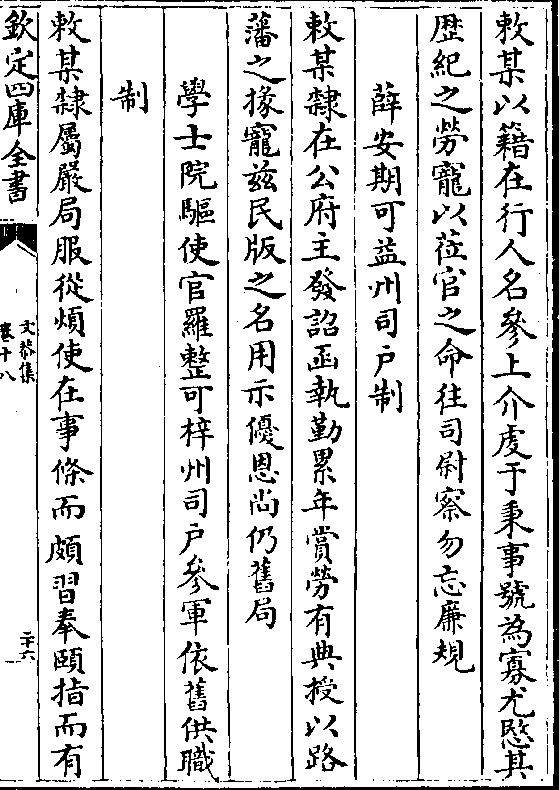 敕某以籍在行人名參上介虔于秉事號為寡尤愍其
歴紀之勞寵以莅官之命往司尉察勿忘廉規
薛安期可益州司户制
敕某隸在公府主發詔函執勤累年賞勞有典授以路
藩之掾寵兹民版之名用示優恩尚仍舊局
學士院驅使官羅整可梓州司户參軍依舊供職
制
敕某隸屬嚴局服從煩使在事條而頗習奉頤指而有
欽定四庫全書
文恭集
卷十八
二十六